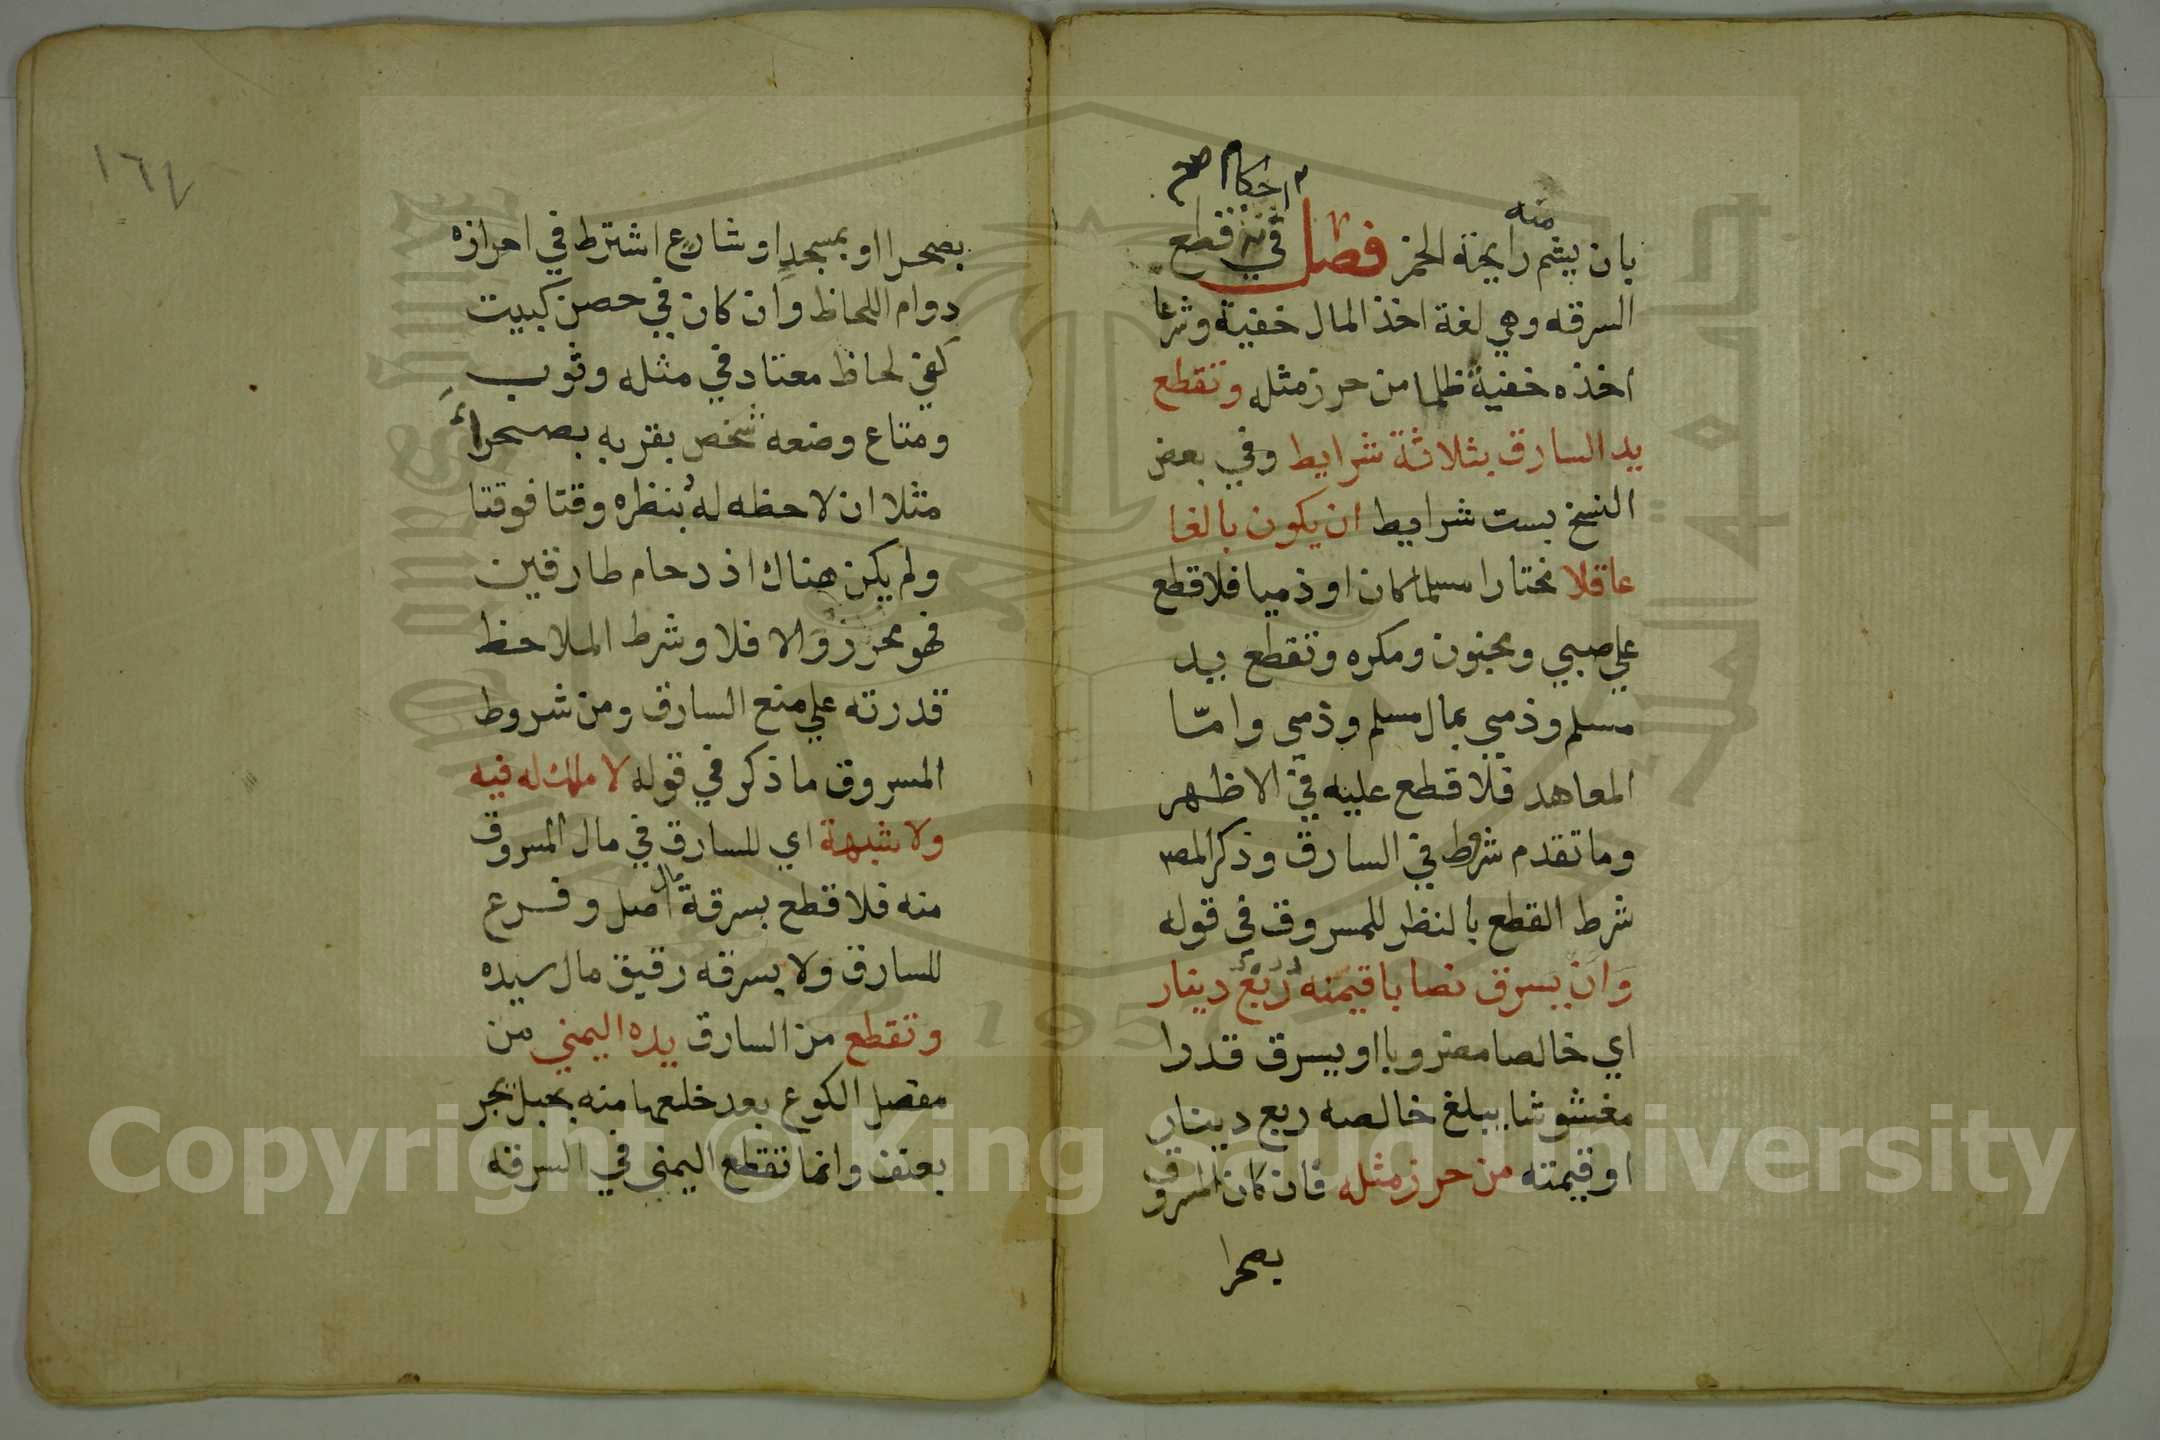 احكام صح
منه
بان يشم رايحة الخمر فصل في قطع
السرقه وهي لغة اخذ المال خفية وشرعا
اخذه خفية ظلما من حرز مثله وتقطع
يد السارق بثلاثة شرايط وفي بعض
النسخ بست شرايط ان يكون بالغا
عاقلا مختارا مسلما كان او ذميا فلا قطع
علي صبي ومجنون ومكره وتقطع يد
مسلم وذمي بمال مسلم وذمي وامّا
المعاهد فلا قطع عليه في الاظهر
وما تقدم شرط في السارق وذكر المصـ
شرط القطع بالنظر للمسروق في قوله
وان يسرق نصابا قيمته ربع دينار
اي خالصا مضروبا او يسرق قدرا
مغشوشا يبلغ خالصه ربع دينار
او قيمته من حرز مثله فان كان المسروق
بصحرا
١٦٧
بصحرا او بمسجد او شارع اشترط في احرازه
دوام اللحاظ وان كان في حصن كبيت
كفي لحاظ معتاد في مثله وثوب
ومتاع وضعه شخص بقربه بصحراء
مثلا ان لاحظه له بنظره وقتا فوقتا
ولم يكن هناك اذدحام طارقين
فهو محرز والا فلا وشرط الملاحظ
قدرته علي منع السارق ومن شروط
المسروق ما ذكر في قوله لا ملك له فيه
ولا شبهة اي للسارق في مال المسروق
منه فلا قطع بسرقة مال اصل وفرع
للسارق ولا بسرقه رقيق مال سيده
وتقطع من السارق يده اليمني من
مفصل الكوع بعد خلعها منه بحبل يجر
بعنف وانما تقطع اليمني في السرقه
Copyright © King Saud University
جامعة الملك سعود
King Saud University
1957